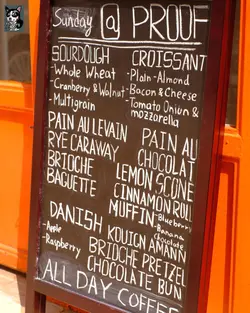 Sunday @ PROOF
SOURDOUGH
-Whole Wheat
-Cranberry & Walnut
-Multigrain
PAIN AU LEVAIN
RYE CARAWAY
BRIOCHE
BAGUETTE
DANISH
-Apple
-Raspberry
CROISSANT
-Plain -Almond
-Bacon & Cheese
-Tomato Onion &
mozzarella
PAIN AU
CHOCOLAT
LEMON SCONE
CINNAMON ROLL
MUFFIN -Blueberry
-Banana
Chocolate
KOUIGN AMANN
BRIOCHE PRETZEL
CHOCOLATE BUN
ALL DAY COFFEE